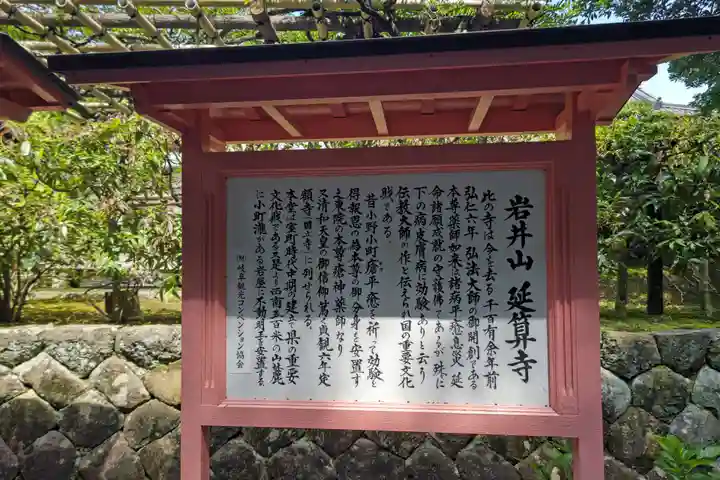 岩井山 延算寺
此の寺は今を去る千百有余年前
弘仁六年 弘法大師の御開創である
本尊薬師如来は諸病平癒息災 延
命諸願成就の守護佛であるが 殊に
下の病皮膚病に効験ありと云う
伝教大師の作と伝えられ国の重要文化
財である。
昔小野小町瘡平癒を祈って効験を
得報恩の為本尊の御分身を安置す
之東院の本尊瘡神薬師なり
又清和天皇の御信仰篤く貞観六年定
願寺(国立寺)に列せられる。
本堂は室町時代中期の建立で県の重要
文化財である 是より西南五百米の山麓
に小町瀧がある岩屋に不動明王を安置する
㈶岐阜観光コンベンション協会